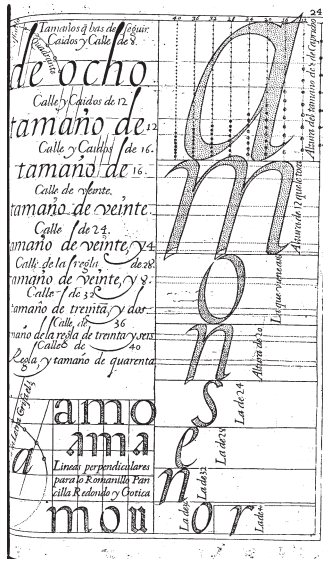 24
40 36 32 28 24 20 16 12
Tamaños q̃ bas de seguir.
Caidos y Calle de 8.
de ocho
Calle y Caidos de 12
tamaño de 12
Calle y Caidos de 16.
tamaño de 16.
Calle de veinte.
tamaño de veinte
Calle de 24.
tamaño de veinte, y 4
Calle de la regla de 28.
tamaño de veinte, y 8.
Calle de 32
tamaño de treinta, y dos
Calle de 36
tamaño de la regla de treinta y seis
Calle de 40
Regla, y tamaño de quarenta
amo
ama
Lineas perpendiculares
para lo Romanillo Pan
cilla Redondo y Gotica
mou
a
a
m
o
n
s
e
n
o
r
Altura del tamaño de 8 de Caprecho
Altura de 12 que le toca
Lo que viene a 16
Altura de 20
La de 24
La de 28
La de 32
La de
La de